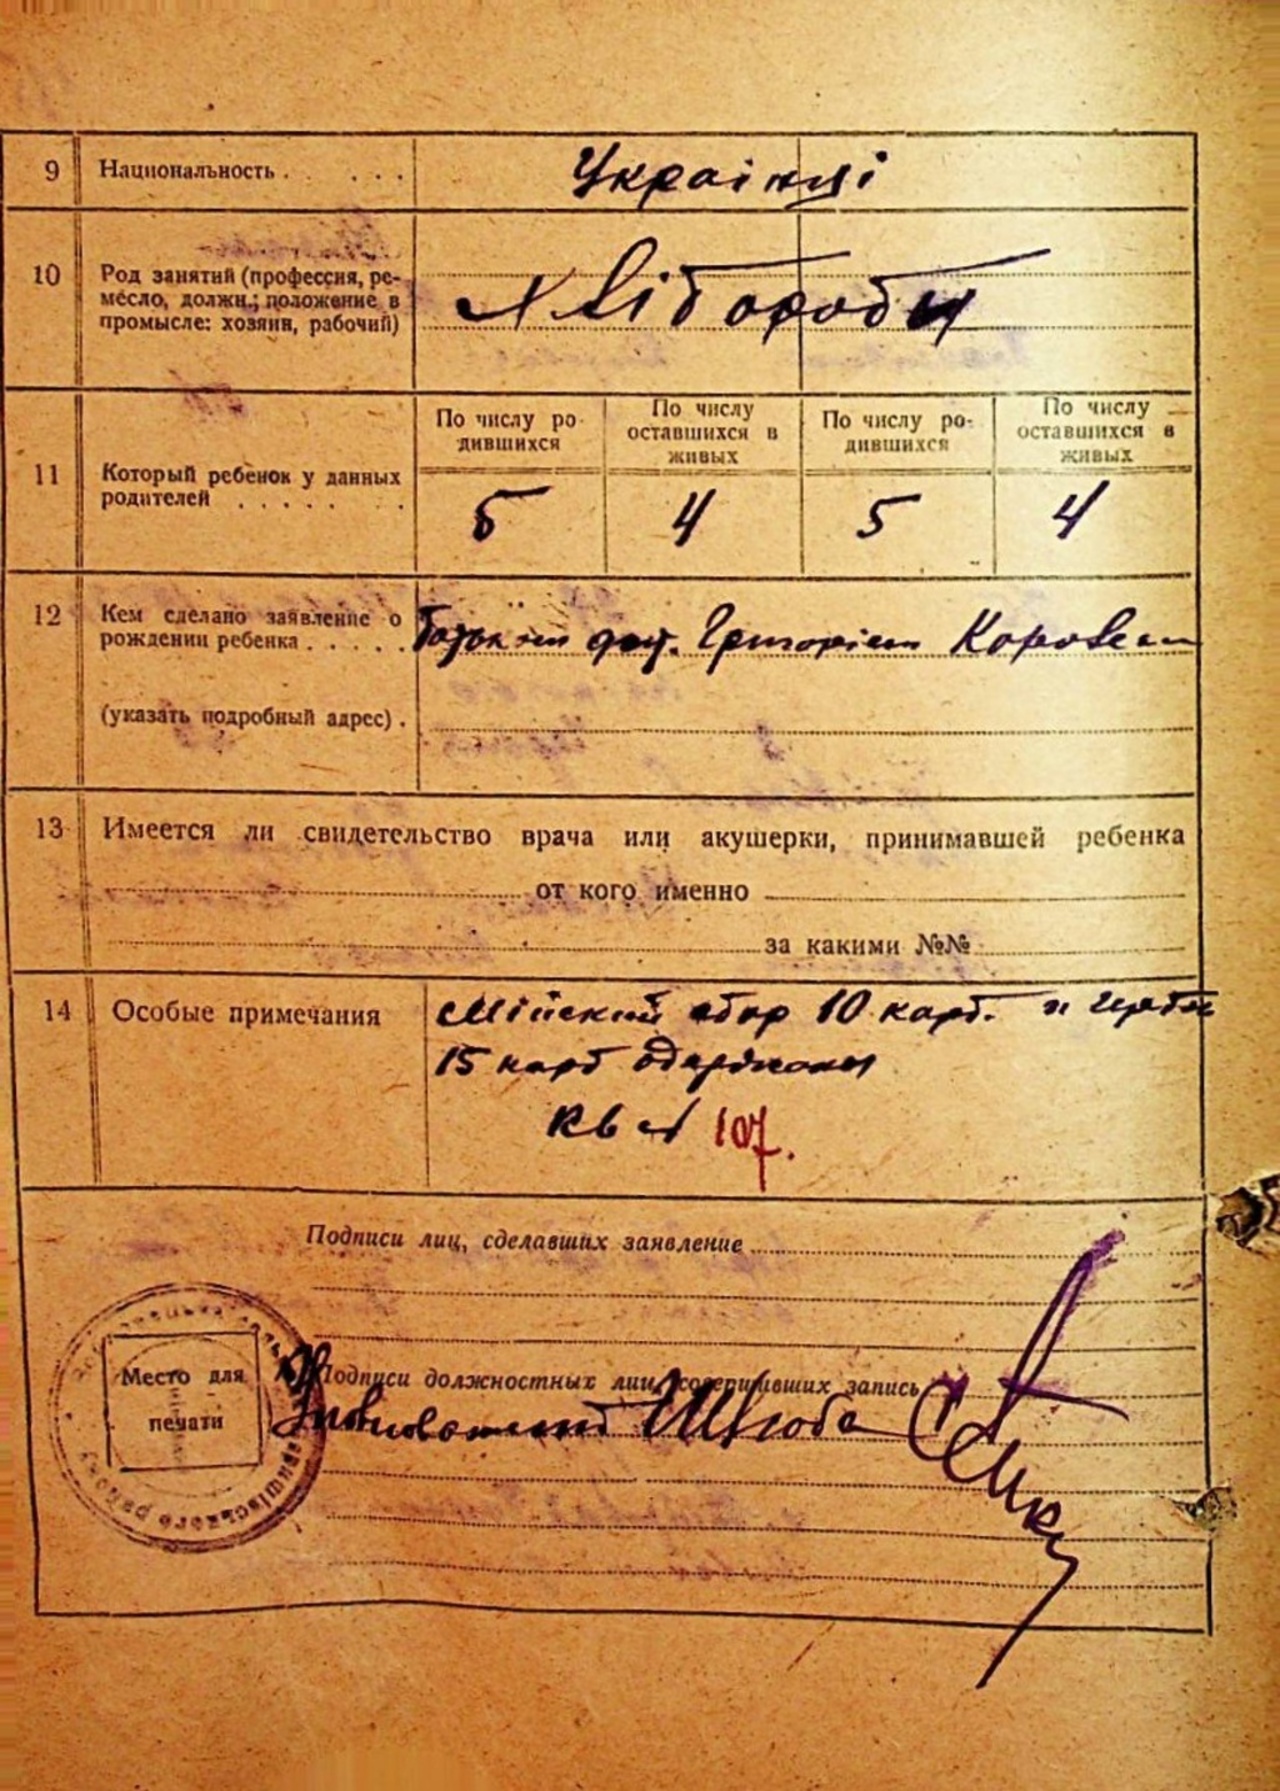 9 Национальность . . . . . Українці
10 Род занятий (профессия, ре-
месло, должн.; положение в
промысле: хозяин, рабочий)
Хлібороби
По числу ро-
дившихся
По числу
оставшихся в
живых
По числу ро-
дившихся
По числу
оставшихся в
живых
11 Который ребенок у данных
родителей . . . . . .
5 4 5 4
12 Кем сделано заявление о
рождении ребенка . . . . .
Григорієм
(указать подробный адрес) .
13 Имеется ли свидетельство врача или акушерки, принимавшей ребенка
от кого именно
за какими №№
14 Особые примечания
збор 10 карб.
15 карб одержано
Кв № 107.
Подписи лиц, сделавших заявление
Подписи должностных лиц, совершивших запись
Место для
печати
району